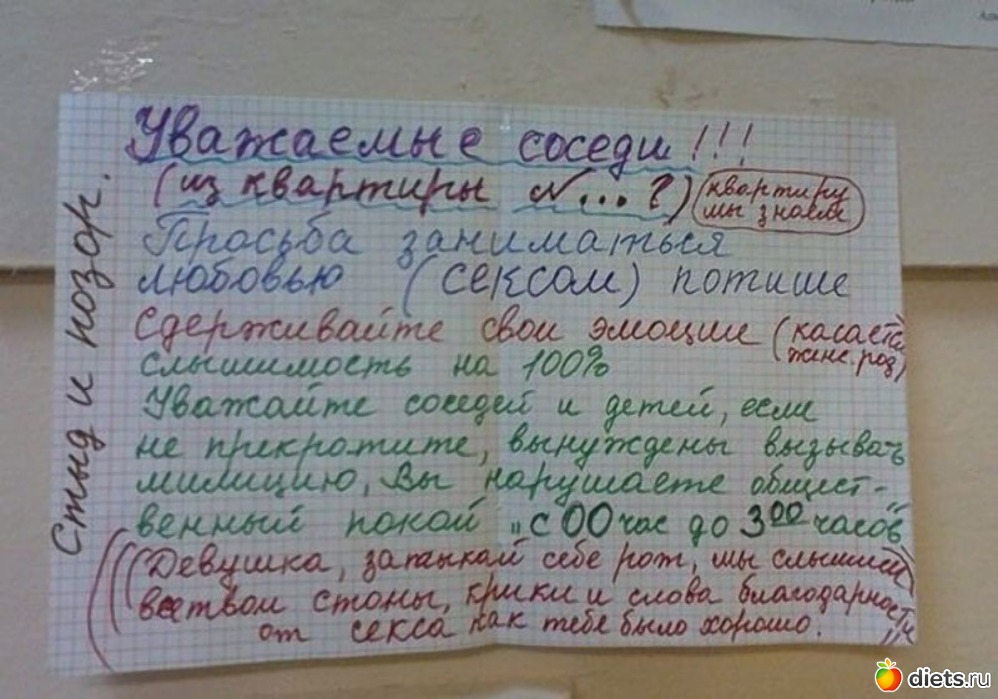 Уважаемые соседи!!!
(из квартиры №...?) (квартиру
мы знаем)
Просьба заниматься
любовью (сексом) потише
Сдерживайте свои эмоции (касается
женс. род)
слышимость на 100%
Уважайте соседей и детей, если
не прекротите, вынуждены вызывать
милицию, Вы нарушаете общест-
венный покой "с 00 час до 3 00 часов"
(((Девушка, затыкай себе рот, мы слышим
все твои стоны, крики и слова благодарности
от секса как тебе было хорошо.
Стыд и позор.
diets.ru